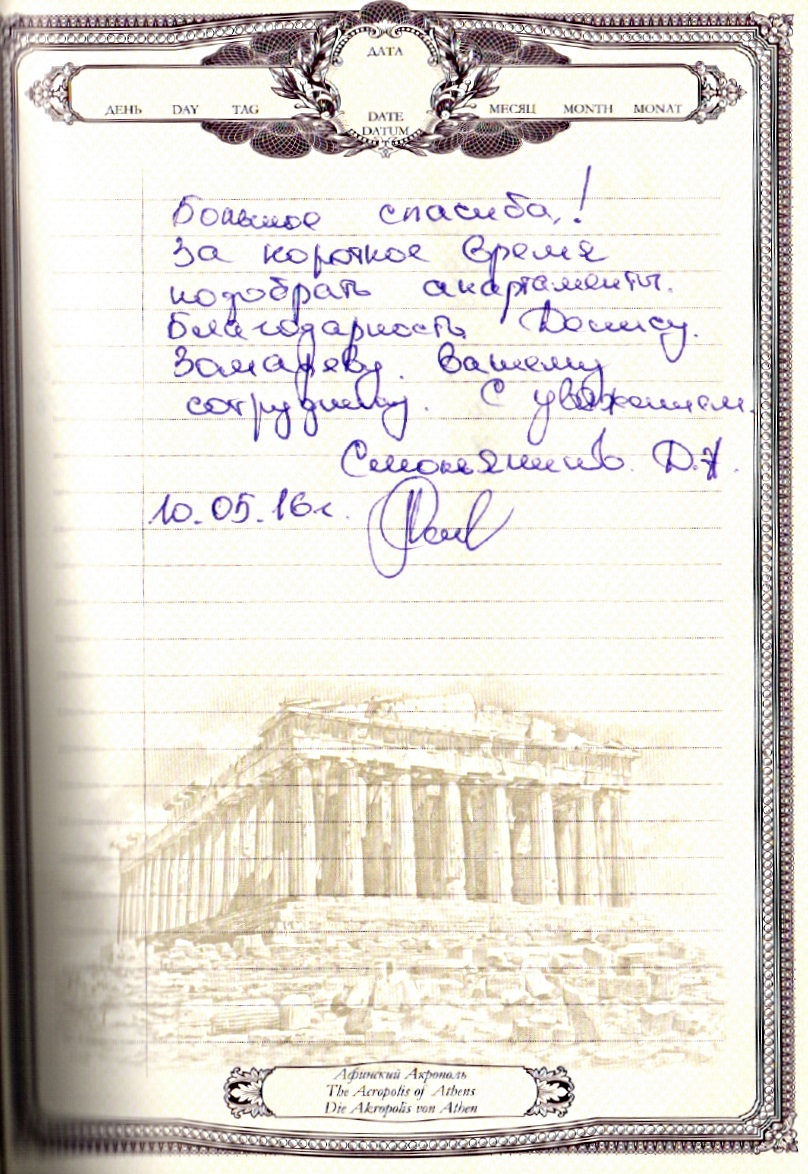 ДАТА
ДЕНЬ DAY TAG
DATE
DATUM
МЕСЯЦ MONTH MONAT
Большое спасиба,!
За короткое время
подобрать апартаменты.
Благодарность Денису.
вашему
сотруднику. С уважением.
Д.
10.05.16г.
Афинский Акрополь
The Acropolis of Athens
Die Akropolis von Athen